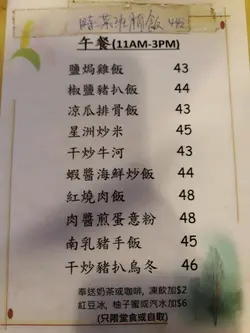 時菜班腩飯 45
午餐(11AM-3PM)
鹽焗雞飯 43
椒鹽豬扒飯 44
凉瓜排骨飯 43
星洲炒米 45
干炒牛河 43
蝦醬海鮮炒飯 44
紅燒肉飯 48
肉醬煎蛋意粉 48
南乳豬手飯 45
干炒豬扒烏冬 46
奉送奶茶或咖啡, 凍飲加$2
紅豆冰, 柚子蜜或汽水加$6
(只限堂食或自取)